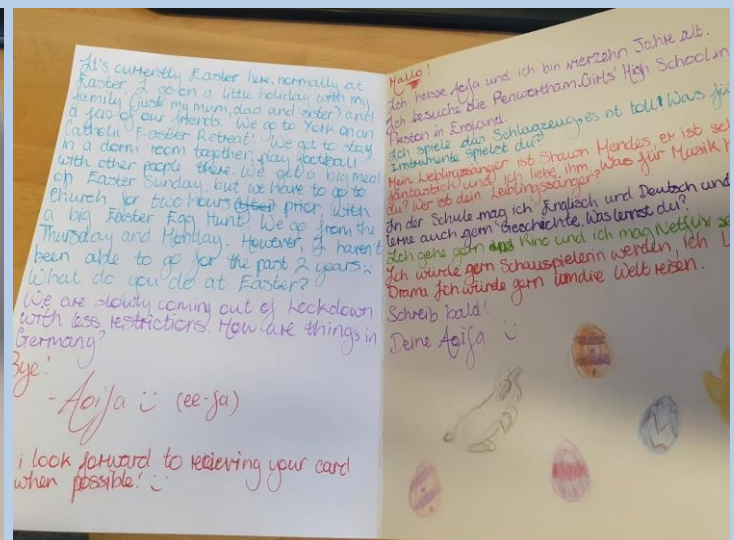 It's currently Easter here, normally at
Easter, I go on a little holiday with my
family (just my mum, dad and sister) and
a few of our friends. We go to York on an
Catholic 'Easter Retreat'. We get to stay
in a dorm room together, play football
with other people there. We get a big meal
on Easter Sunday, but we have to go to
church for two hours prior, with
a big Easter Egg Hunt! We go from the
Thursday and Monday. However, I haven't
been able to go for the past 2 years.
What do you do at Easter?
We are slowly coming out of lockdown
with less restrictions. How are things in
Germany?
Bye!
- Aoifa :) (ee-fa)
i look forward to recieving your card
when possible! :)
Hallo!
Ich heisse Aoifa und ich bin vierzehn Jahre alt.
Ich besuche die Penwortham Girls' High School in
Preston in England.
Ich spiele das Schlagzeug, es ist toll! Was für
Instrumente spielst du?
Mein Lieblingssänger ist Shawn Mendes, er ist
fantastisch und ich liebe ihm. Was für Musik
du? Wer ist dein Leiblingssänger?
In der Schule mag ich Englisch und Deutsch und
lerne auch gern Geschichte. Was lernst du?
Ich gehe gern ins Kino und ich mag Netflix
Ich würde gern Schauspielerin werden, ich
Drama. Ich würde gern um die Welt reisen.
Schreib bald!
Deine Aoifa :)